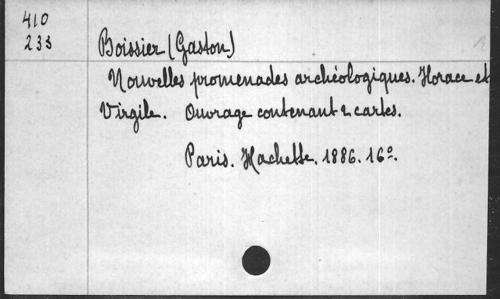 410
233
Boissier (Gaston)
Nouvelles promenades archéologiques. Horace et
Virgile. Ouvrage contenant 2 cartes.
Paris. Hachette. 1886. 16º.